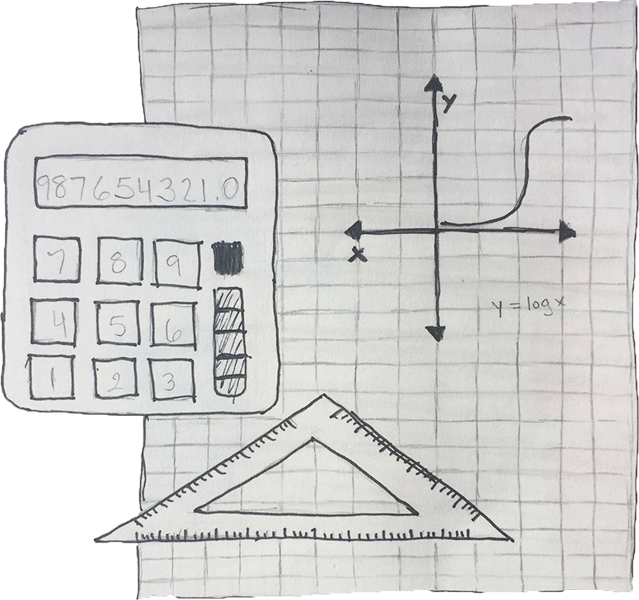 987654321.0
7 8 9
4 5 6
1 2 3
y
x
y = log x